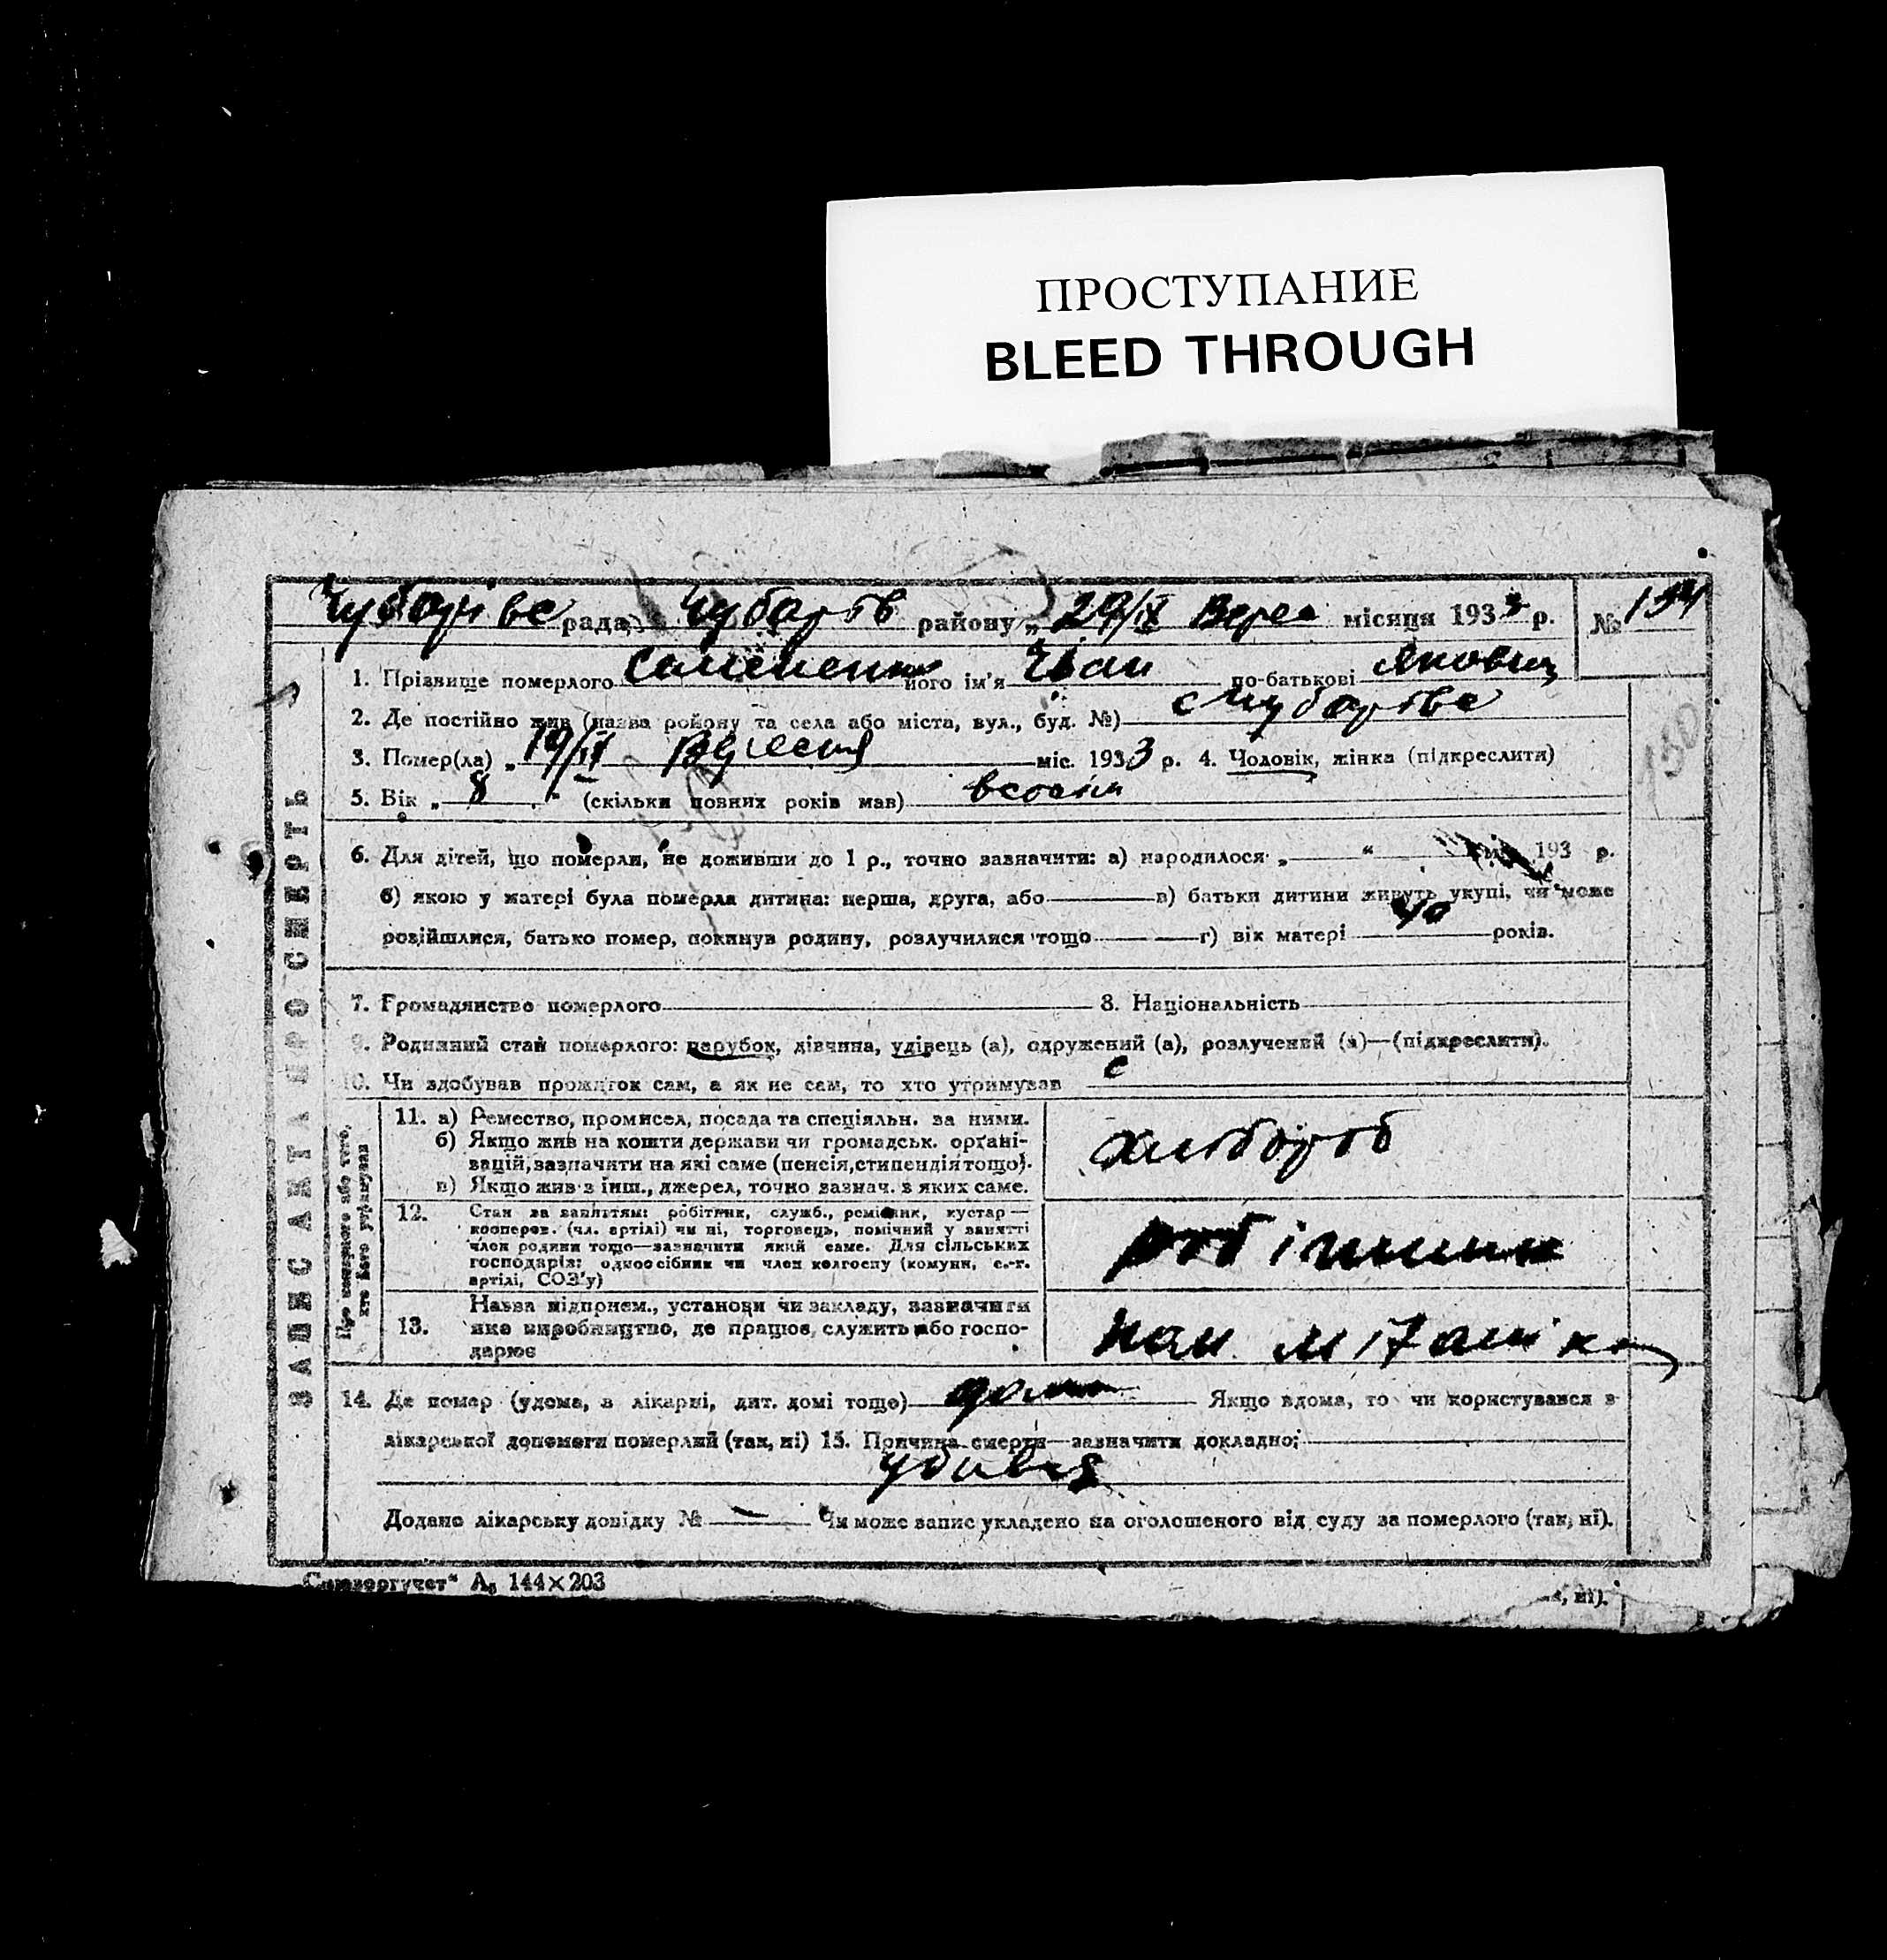 ПРОСТУПАНИЕ
BLEED THROUGH
рада Чубарів району „ 29/IX Верес місяця 1933 р. № 134
1. Прізвище померлого Семененко його ім'я Іван по-батькові Якович
2. Де постійно жив (назва району та села або міста, вул., буд. №) с Чубарівка
3. Помер(ла) „ 19/IX міс. 1933 р. 4. Чоловік, жінка (підкреслити)
5. Вік „ 8 “ (скільки повних років мав) вісім
6. Для дітей, що померли, не доживши до 1 р., точно зазначити: а) народилося „ “ міс. 193 р.
б) якою у матері була померла дитина: перша, друга, або в) батьки дитини живуть укупі, чи може
розійшлися, батько помер, покинув родину, розлучилися тощо г) вік матері 40 років.
7. Громадянство померлого 8. Національність
9. Родинний стан померлого: парубок, дівчина, удівець (а), одружений (а), розлучений (а)—(підкреслити).
10. Чи здобував прожиток сам, а як не сам, то хто утримував
ЗАПИС АКТА ПРО СМЕРТЬ
11. а) Ремество, промисел, посада та спеціяльн. за ними.
б) Якщо жив на кошти держави чи громадськ. орґані-
зацій, зазначити на які саме (пенсія, стипендія тощо).
в) Якщо жив з інш., джерел, точно зазнач. з яких саме.
хлібороб
12. Стан за заняттям: робітник, служб., ремісник, кустар—
кооперов. (чл. артілі) чи ні, торговець, помічний у занятті
член родини тощо—зазначити який саме. Для сільських
господарів: одноосібник чи член колгоспу (комуни, с.-г.
артілі, СОЗ'у)
робітник
13. Назва підприєм., установи чи закладу, зазначити
яке виробництво, де працює, служить або госпо-
дарює
14. Де помер (удома, в лікарні, дит. домі тощо) дома Якщо вдома, то чи користувався з
лікарської допомоги померлий (так, ні) 15. Причина смерти—зазначити докладно:
Додано лікарську довідку № — Чи може запис укладено на оголошеного від суду за померлого (так, ні).
„Союзоргучет“ А₅ 144×203
, ні).